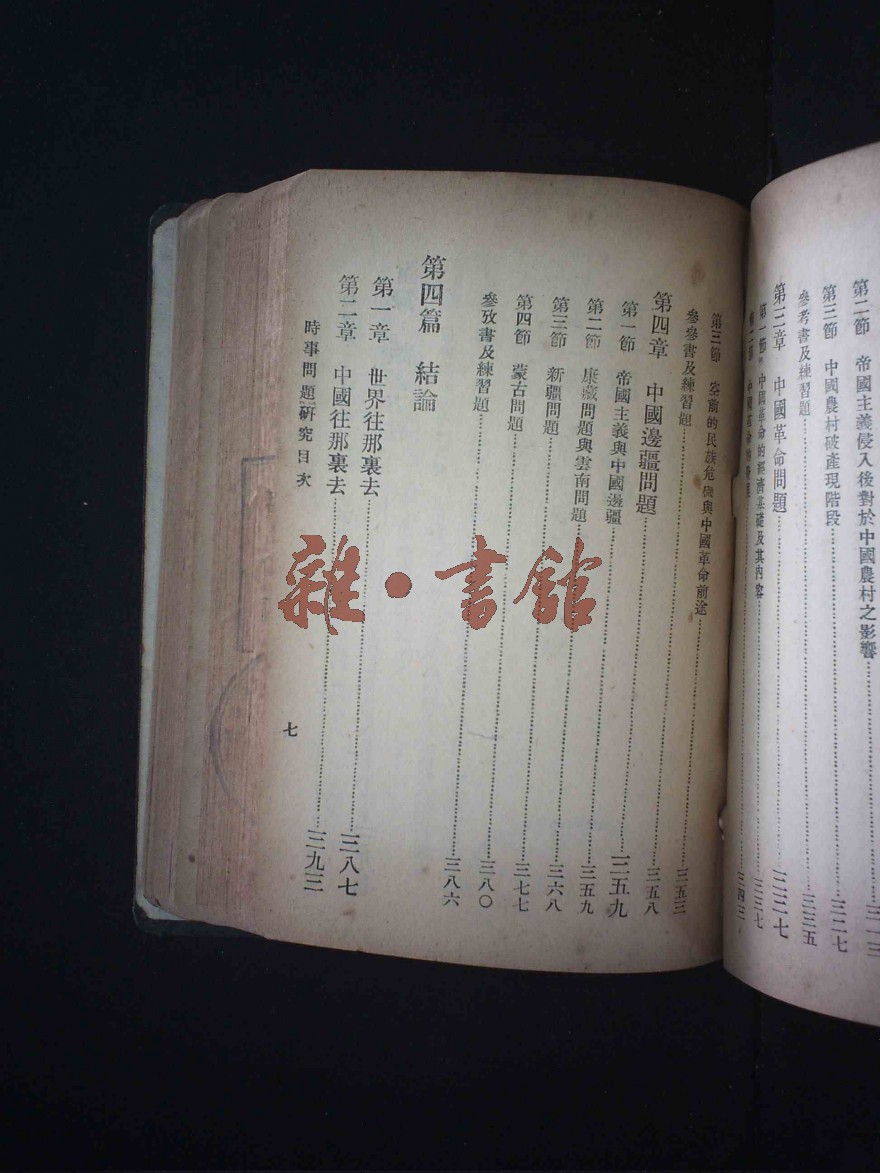 第二節 帝國主義侵入後對於中國農村之影響……三一三
第三節 中國農村破產現階段……三二七
參考書及練習題……三三五
第三章 中國革命問題……三三七
第一節 中國革命的經濟基礎及其內容……三三七
第二節 中國革命的……三四三
第三節 空前的民族危機與中國革命前途……三五三
參參書及練習題……三五八
第四章 中國邊疆問題……三五九
第一節 帝國主義與中國邊疆……三五九
第二節 康藏問題與雲南問題……三六八
第三節 新疆問題……三七七
第四節 蒙古問題……三八〇
參攷書及練習題……三八六
第四篇 結論
第一章 世界往那裏去……三八七
第二章 中國往那裏去……三九三
時事問題研究目次
七
雜·書館